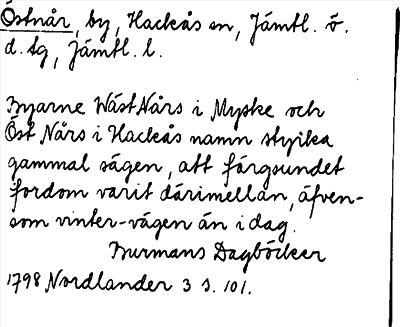 Östnår, by, Hackås sn, Jämtl. ö.
d. tg, Jämtl. l.
Byarne Wäst Nårs i Myske och
Öst Nårs i Hackås namn styrka
gammal sägen, att färgsundet
fordom varit därimellan, äfven-
som vinter-vägen än i dag.
Burmans Dagböcker
1798 Nordlander 3 s. 101.